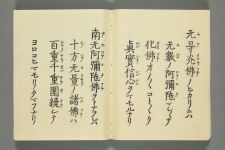 无㝵光佛ノヒカリニハ
无數ノ阿彌陀マシマシテ
化佛オノオノコトゴトク
眞實信心ヲマモルナリ
南无阿彌陀佛ヲトナフレハ
十方无量ノ諸佛ハ
百重千重圍繞シテ
ヨロコヒマモリタマフナリ